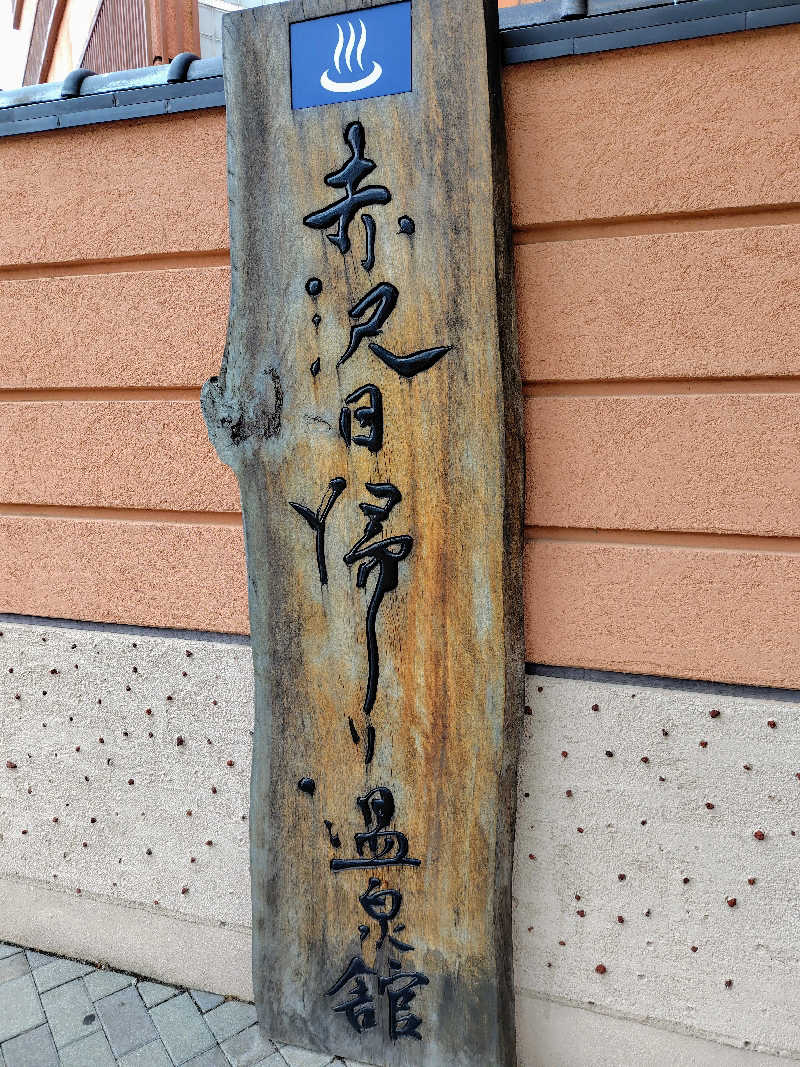 赤沢日帰り温泉館